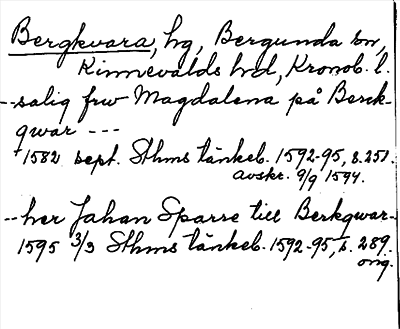 Bergkvara, hg, Bergunda sn,
Kinnevalds hd, Kronob. l.
--salig frw Magdalena på Berck-
qwar ---
†1582 sept. Sthms tänkeb. 1592-95, s. 251.
avskr. 9/9 1594.
--her Jahan Sparre till Berkqwar-
1595 3/3 Sthms tänkeb. 1592-95, s. 289.
orig.